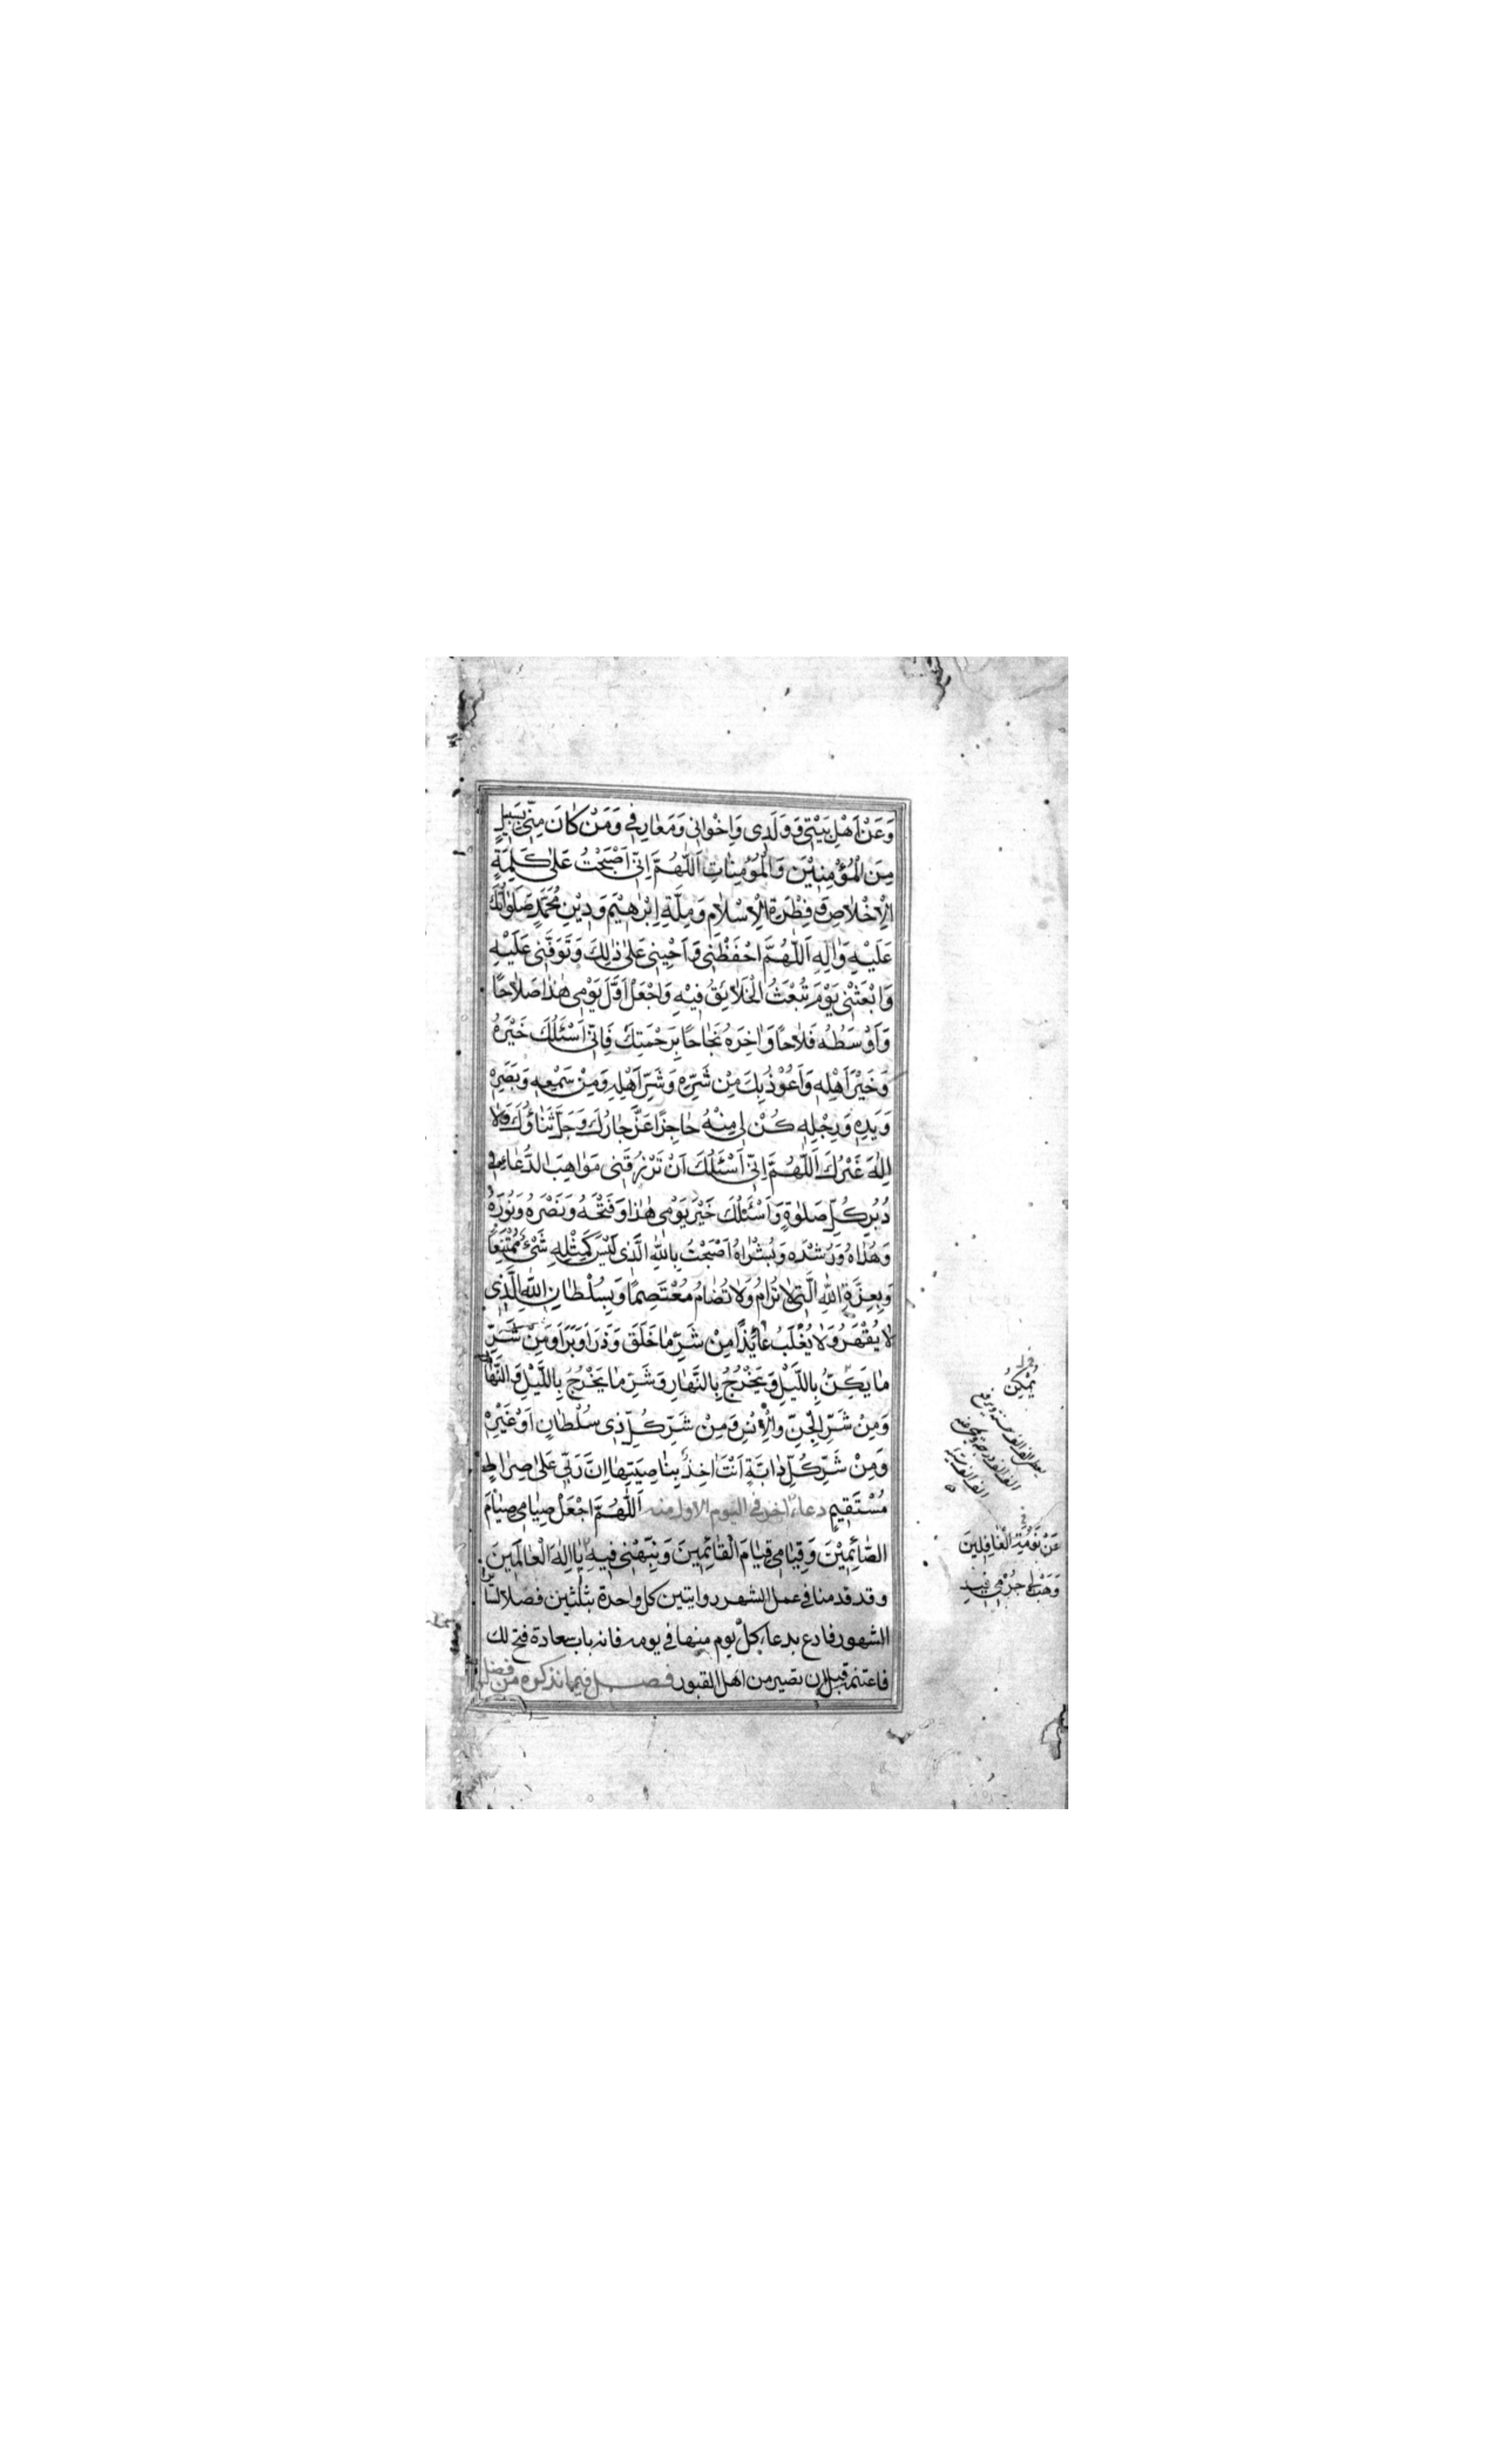 وَعَنْ اَهْلِ بَيْتِي وَوَلَدِي وَاِخْوانِي وَمَعٰارِفِي وَمَنْ كانَ مِنّي بِسَبيلٍ
مِنَ الْمُؤْمِنِيْنَ وَالْمُؤْمِنٰاتِ اَللّٰهُمَّ اِنّي اَصْبَحْتُ عَلٰى كَلِمَةِ
الْاِخْلٰاصِ وَفِطْرَةِ الْاِسْلٰامِ وَمِلَّةِ اِبْرٰهِيْمَ وَدِيْنِ مُحَمَّدٍ صَلَوٰاتُكَ
عَلَيْهِ وَاٰلِهِ اَللّٰهُمَّ احْفَظْنِي وَاَحْيِنِي عَلٰى ذٰلِكَ وَتَوَفَّنِي عَلَيْهِ
وَابْعَثْنِي يَوْمَ تُبْعَثُ الْخَلٰايِقُ فِيْهِ وَاجْعَلْ اَوَّلَ يَوْمِي هٰذٰا صَلٰاحًا
وَاَوْسَطُهُ فَلٰاحًا وَاٰخِرَهُ نَجٰاحًا بِرَحْمَتِكَ فَاِنّي اَسْئَلُكَ خَيْرَهُ
وَخَيْرَ اَهْلِهِ وَاَعُوْذُ بِكَ مِنْ شَرِّهِ وَشَرِّ اَهْلِهِ وَمِنْ سَمْعِهِ وَبَصَرِهِ
وَيَدِهِ وَرِجْلِهِ كُنْ لِي مِنْهُ حٰاجِزًا عَزَّ جٰارُكَ وَجَلَّ ثَنٰاؤُكَ وَلٰا
اِلٰهَ غَيْرُكَ اَللّٰهُمَّ اِنّي اَسْئَلُكَ اَنْ تَرْزُقَنِي مَوٰاهِبَ الدُّعٰاءِ فِي
دُبُرِ كُلِّ صَلوٰةٍ وَاَسْئَلُكَ خَيْرَ يَوْمِي هٰذٰا وَفَتْحَهُ وَنَصْرَهُ وَنُورَهُ
وَهُدٰاهُ وَرُشْدَه وَبُشْرٰاهُ اَصْبَحْتُ بِاللهِ الَّذِي لَيْسَ كَمِثْلِهِ شَيْءٌ مُمْتَنِعًا
وَبِعِزَّةِ اللهِ الَّتِي لٰا تُرٰامُ وَلٰا تُضٰامُ مُعْتَصِمًا وَبِسُلْطٰانِ اللهِ الَّذِي
لٰا يُقْهَرُ وَلٰا يُغْلَبُ عٰائِذًا مِنْ شَرِّ مٰا خَلَقَ وَذَرَاَ وَبَرَاَ وَمِنْ شَرِّ
مٰا يَكِنُّ بِاللَّيْلِ وَيَخْرُجُ بِالنَّهٰارِ وَشَرِّ مٰا يَخْرُجُ بِاللَّيْلِ وَالنَّهٰارِ
وَمِنْ شَرِّ الْجِنِّ وَالْاِنْسِ وَمِنْ شَرِّ كُلِّ ذِي سُلْطٰانٍ اَوْ غَيْرِهِ
وَمِنْ شَرِّ كُلِّ دٰابَّةٍ اَنْتَ اٰخِذٌ بِنٰاصِيَتِهٰا اِنَّ رَبّي عَلٰى صِرٰاطٍ
مُسْتَقِيمٍ دعاء اخر في اليوم الاول منه اَللّٰهُمَّ اجْعَلْ صِيٰامِي صِيٰامَ
الصّٰائِمِيْنَ وَقِيٰامِي قِيٰامَ الْقٰائِمِينَ وَنَبِّهْنِي فِيهِ يٰا اِلٰهَ الْعٰالَمِينَ
وقد قدمنا في عمل الشهر روايتين كل واحدة بثلثين فصلا لسائر
الشهور فادع بدعاء كل يوم منها في يومه فانه باب سعادة فتح لك
فاغتنمه قبل ان تصير من اهل القبور فصل فيما نذكره من فضل
يُمْكِنُ
عَنْ نَوْمَةِ الْغٰافِلِينَ
وَهَبْ لِي جُرْمِي فِيهِ